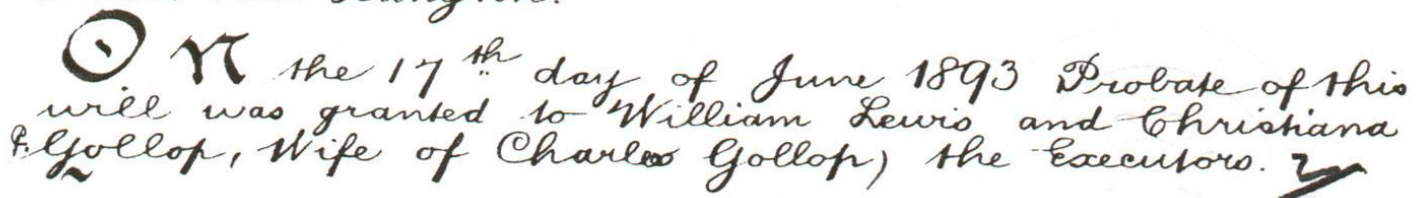 ON the 17th day of June 1893 Probate of this
will was granted to William Lewis and Christiana
Gollop, Wife of Charles Gollop) the Executors.